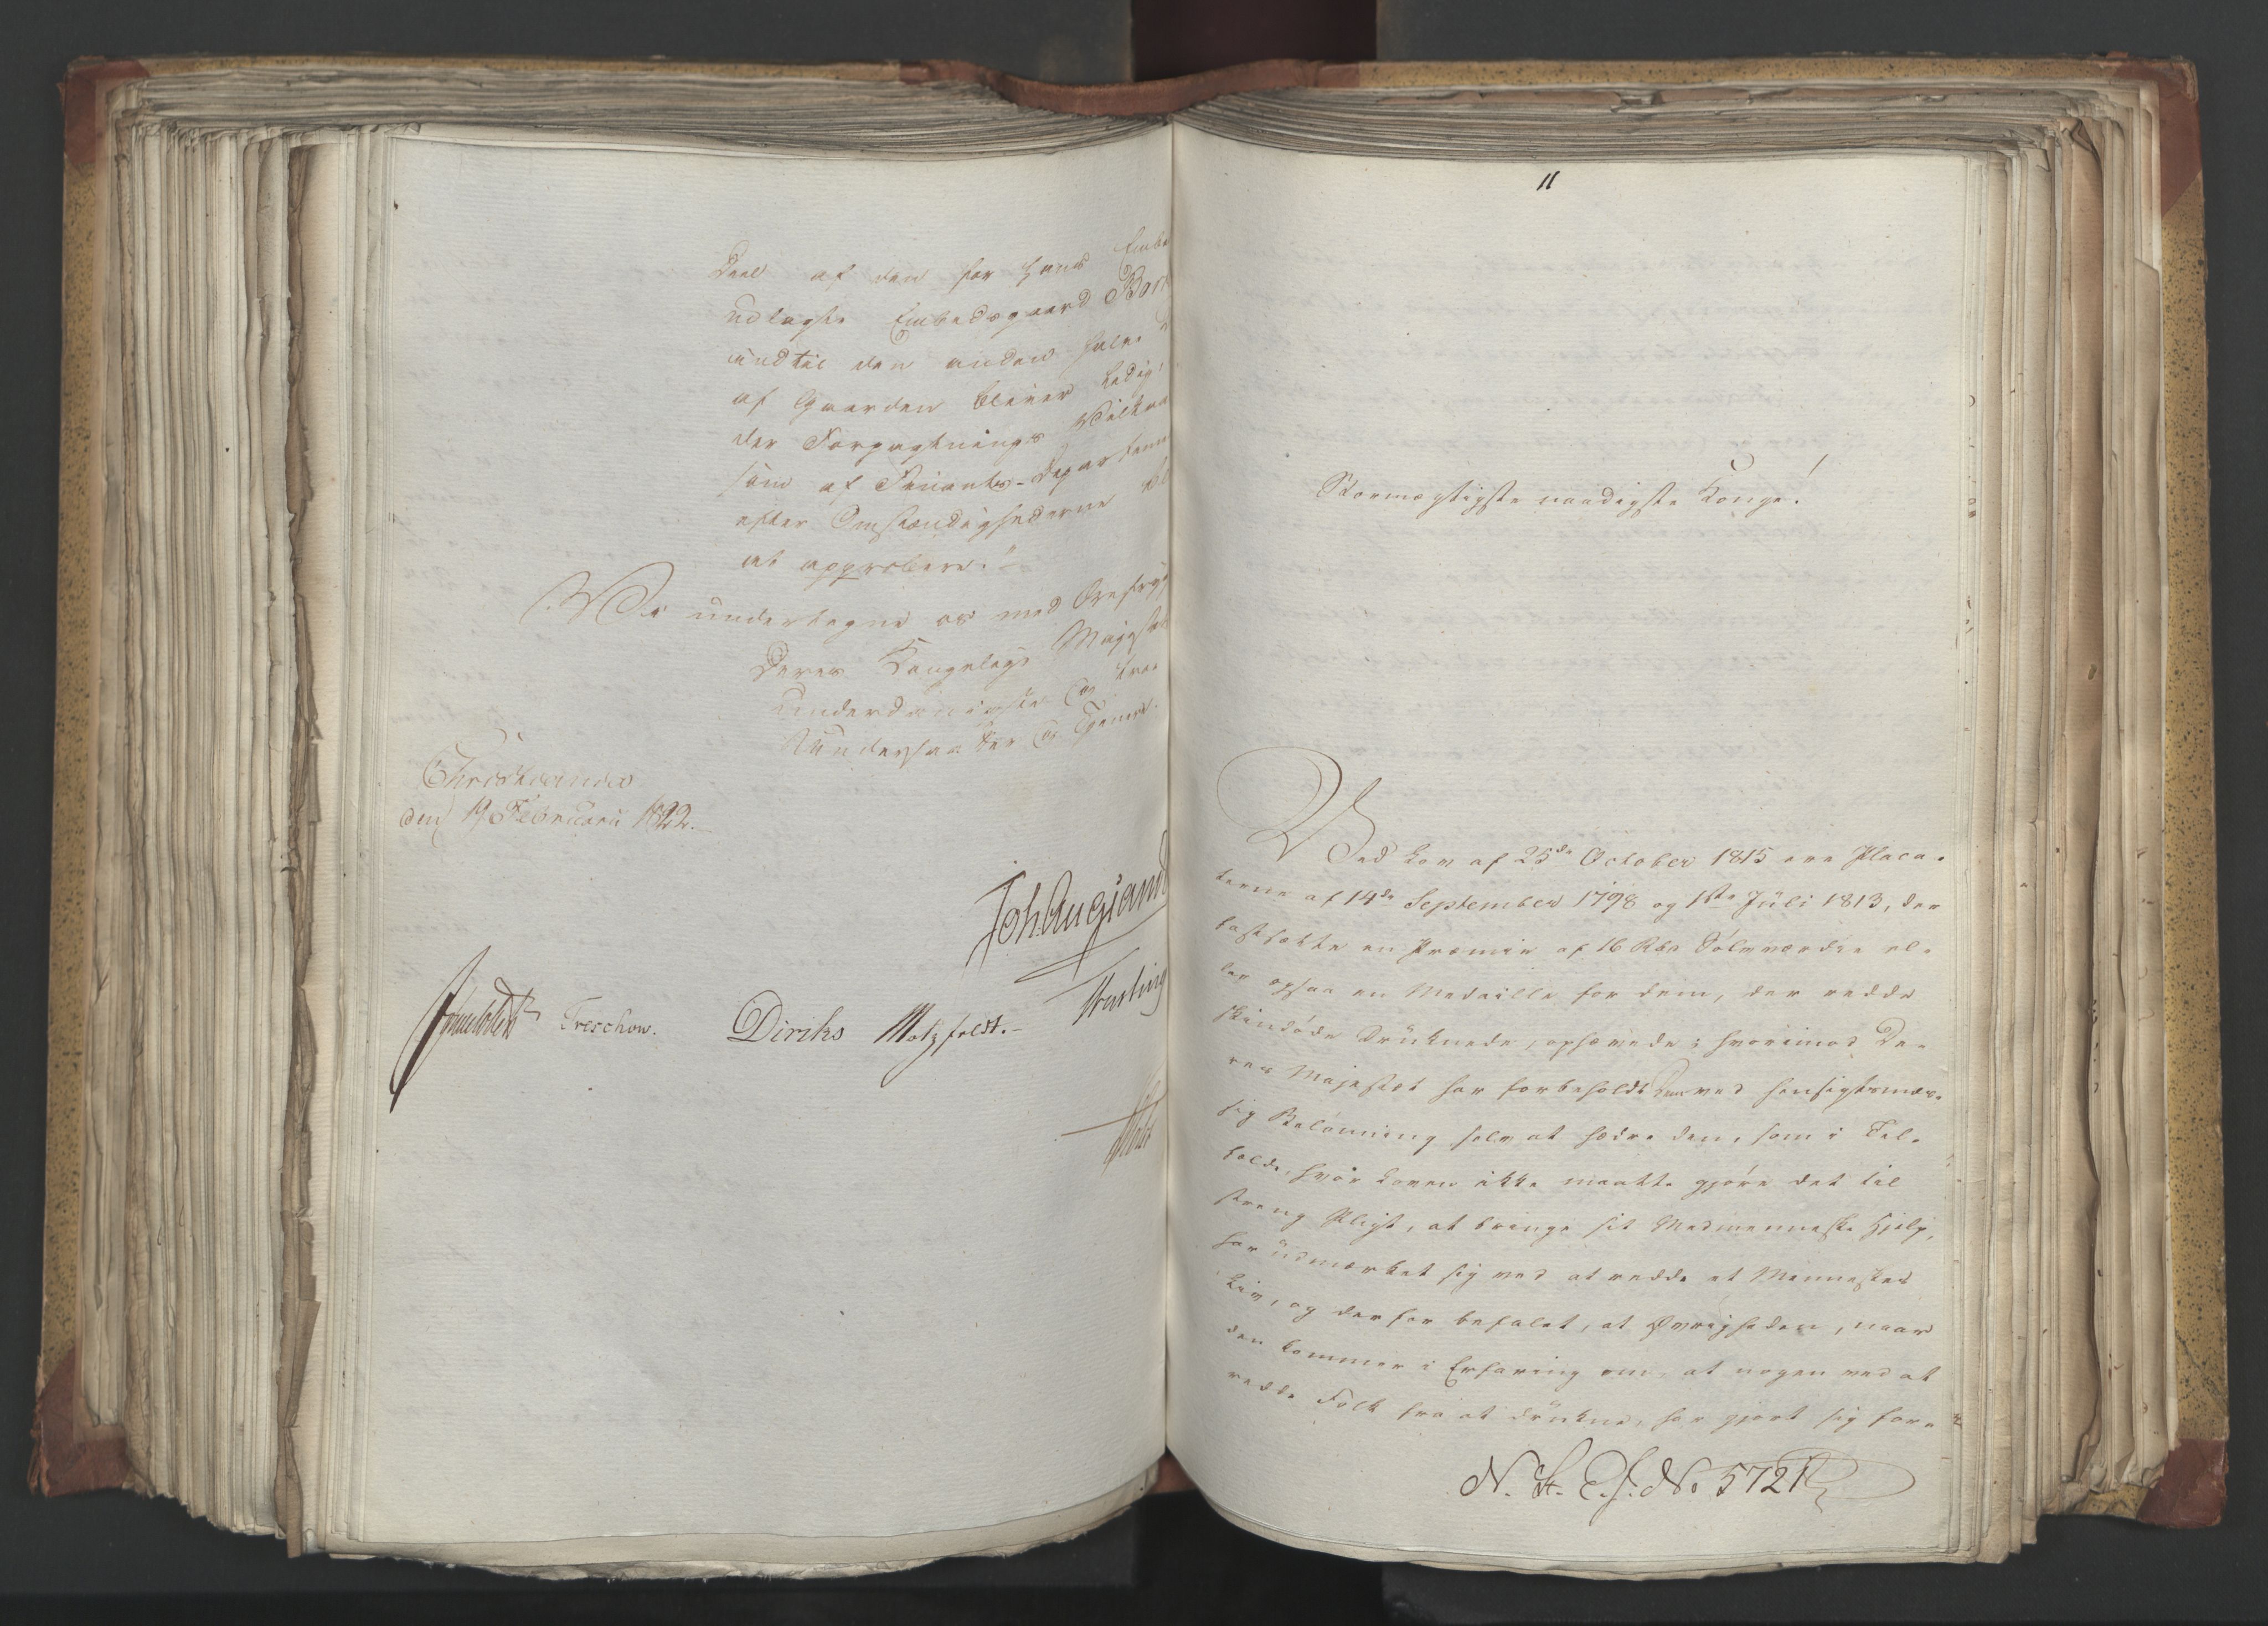 Deel af den for hans Embe
udlagte Embedsgaard Bor
indtil den anden halve
af Gaarden bliver ledig
der Forpagtnings Vilkaa
som af Finants-Departem
efter Omstændighederne
at approbere."
Vi undertegne os med Ærefrygt
Deres Kongelige Majestæts
underdanigste og troe
Undersaatter og Tjenere.
Christiania
den 19 Februarii 1822.
Joh. Aug. Sand
Sommerhielm Treschow. Diriks Motzfeldt.
Fasting
Holst
11
Stormægtigste naadigste Konge!
Ved Lov af 25de October 1815 ere Placa-
terne af 14de September 1798 og 1ste Juli 1813, der
fastsætte en Præmie af 16 Rbd Sølvværdie el-
ler ogsaa en Medaille for dem, der redde
skindøde Druknede, ophævede; hvorimod De-
res Majestæt har forbeholdt Dem ved hensigtsmæs-
sig Belønning selv at hædre den, som i Til-
fælde, hvor Loven ikke maatte gjøre det til
streng Pligt, at bringe sit Medmenneske Hjelp,
har udmærket sig ved at redde et Menneskes
Liv, og derfor befalet, at Øvrigheden, naar
den kommer i Erfaring om, at nogen ved at
redde Folk fra at drukne, har gjort sig for-
N. St. E. f. No 5721